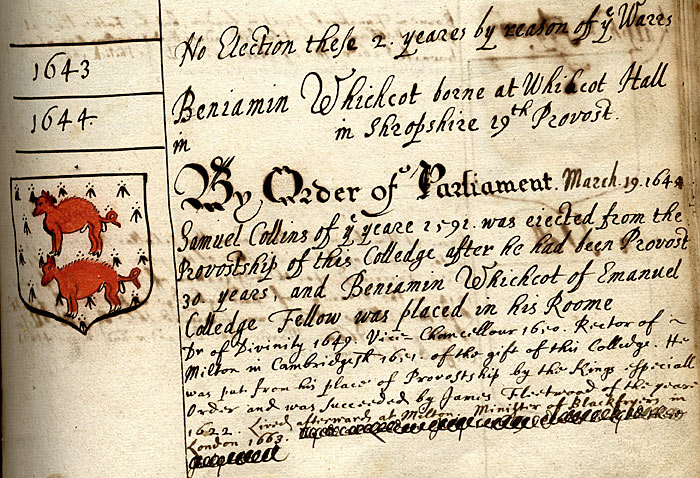 No Election these 2. yeares by reason of yͤ Warrs
1643
1644
Beniamin Whichcot borne at Whichcot Hall
in Shropshire 19th Provost.
in
By Order of Parliament. March. 19. 1644
Samuel Collins of yͤ yeare 1591. was eiected from the
Provostship of this Colledge after he had been Provost
30 years, and Beniamin Whichcot of Emanuel
Colledge Fellow was placed in his Roome
Dr of Divinity 1649. Vice-Chancellour 1650. Rector of
Milton in Cambridgesh 1651. of the gift of this Colledge. He
was put from his place of Provostship by the Kings especiall
Order and was succeeded by James Fleetwood of the yeare
1622. Lived afterwards at Milton. Minister of Blackfryers in
London 1663.